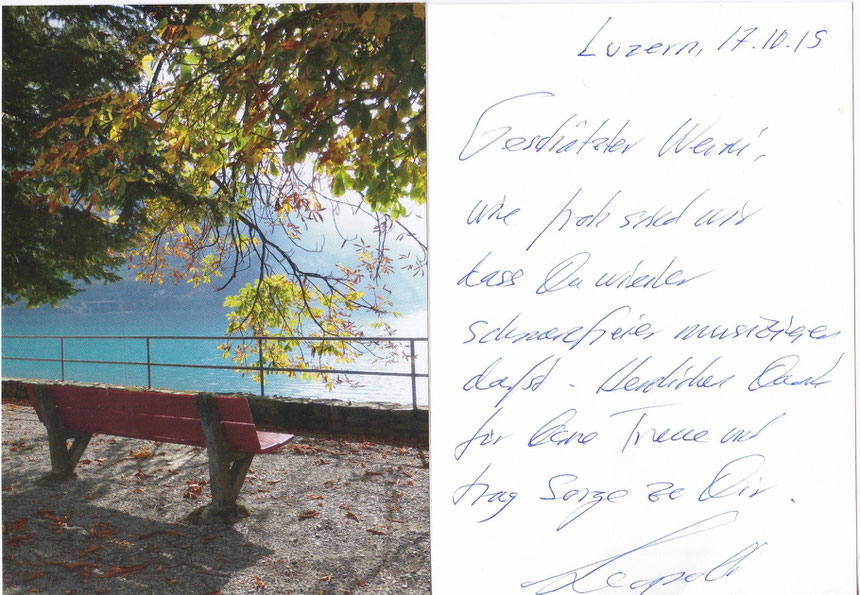 Luzern, 17.10.15
Geschätzter Werni,
wie froh sind wir
dass Du wieder
schmerzfreier musizieren
darfst. Herzlichen Dank
für Deine Treue und
trag Sorge zu Dir.
Leopold